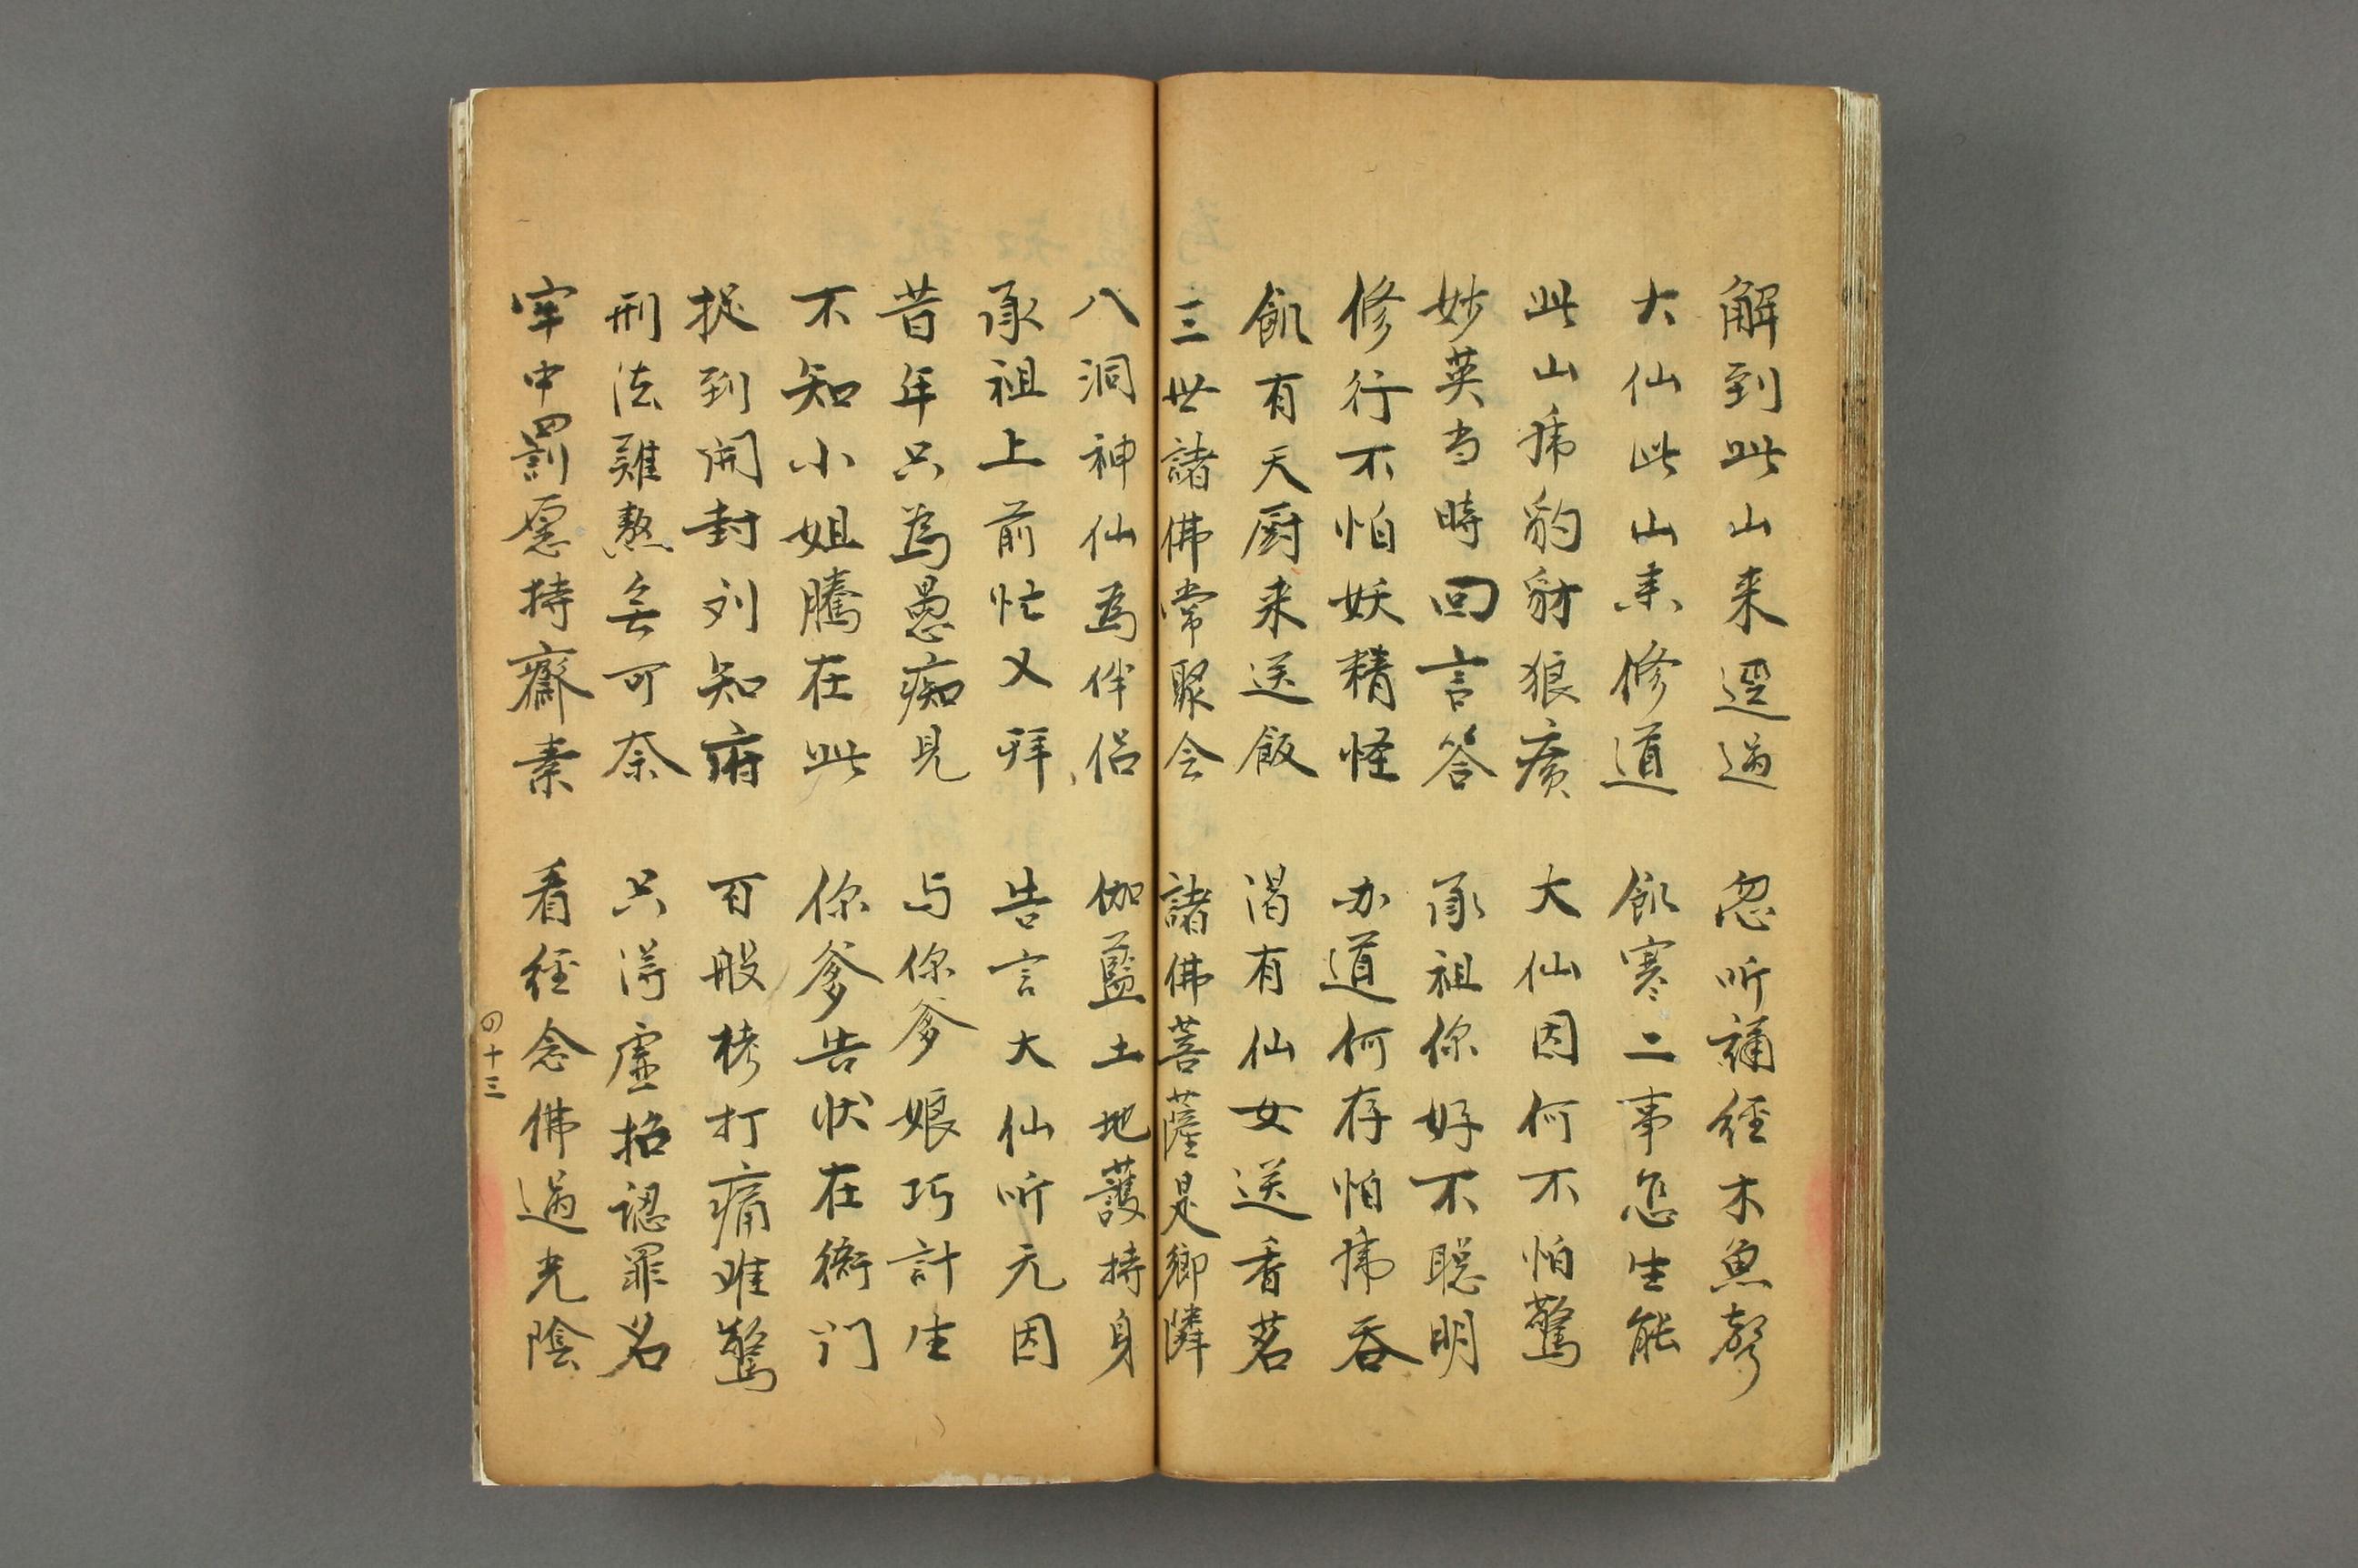 解到此山来逕过 忽听補經木魚声
大仙此山来修道 飢寒二事怎生能
此山乕豹豺狼广 大仙因何不怕驚
妙英当時回言答 承祖你好不聪明
修行不怕妖精怪 办道何存怕乕吞
飢有天厨来送飯 渴有仙女送香茗
三世諸佛常聚会 諸佛菩薩是鄉憐
八洞神仙為伴侣 伽藍土地護持身
承祖上前忙又拜 告言大仙听元因
昔年只為愚痴見 与你爹娘巧計生
不知小姐騰在此 你爹告状在衙门
捉到開封列知府 百般拷打痛难驚
刑法難熬無可奈 只得虚招認罪名
牢中罰愿持齋素 看經念佛過光陰
四十三